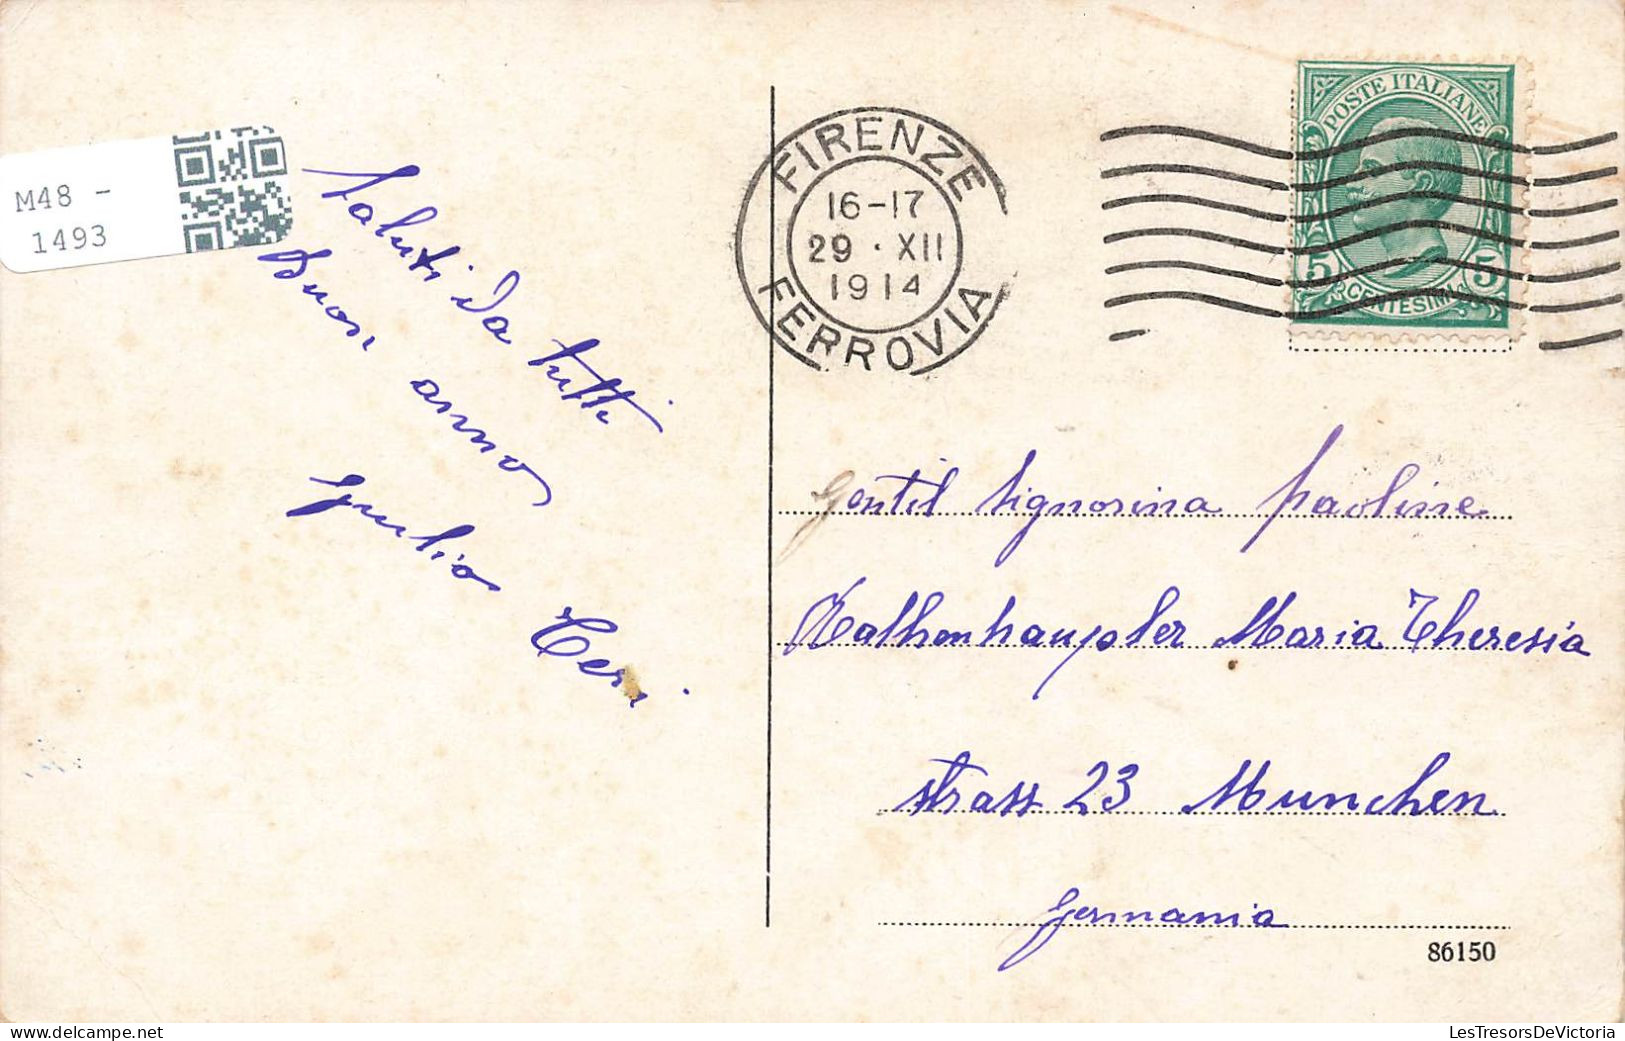 M48 -
1493
Saluti da tutti
Buon anno
Giulio Ceri
FIRENZE
16-17
29 · XII
1914
FERROVIA
POSTE ITALIANE
5 5
CENTESIMI
Gentil Signorina Paoline
Maria Theresia
strass 23 Munchen
Germania
86150
LesTresorsDeVictoria